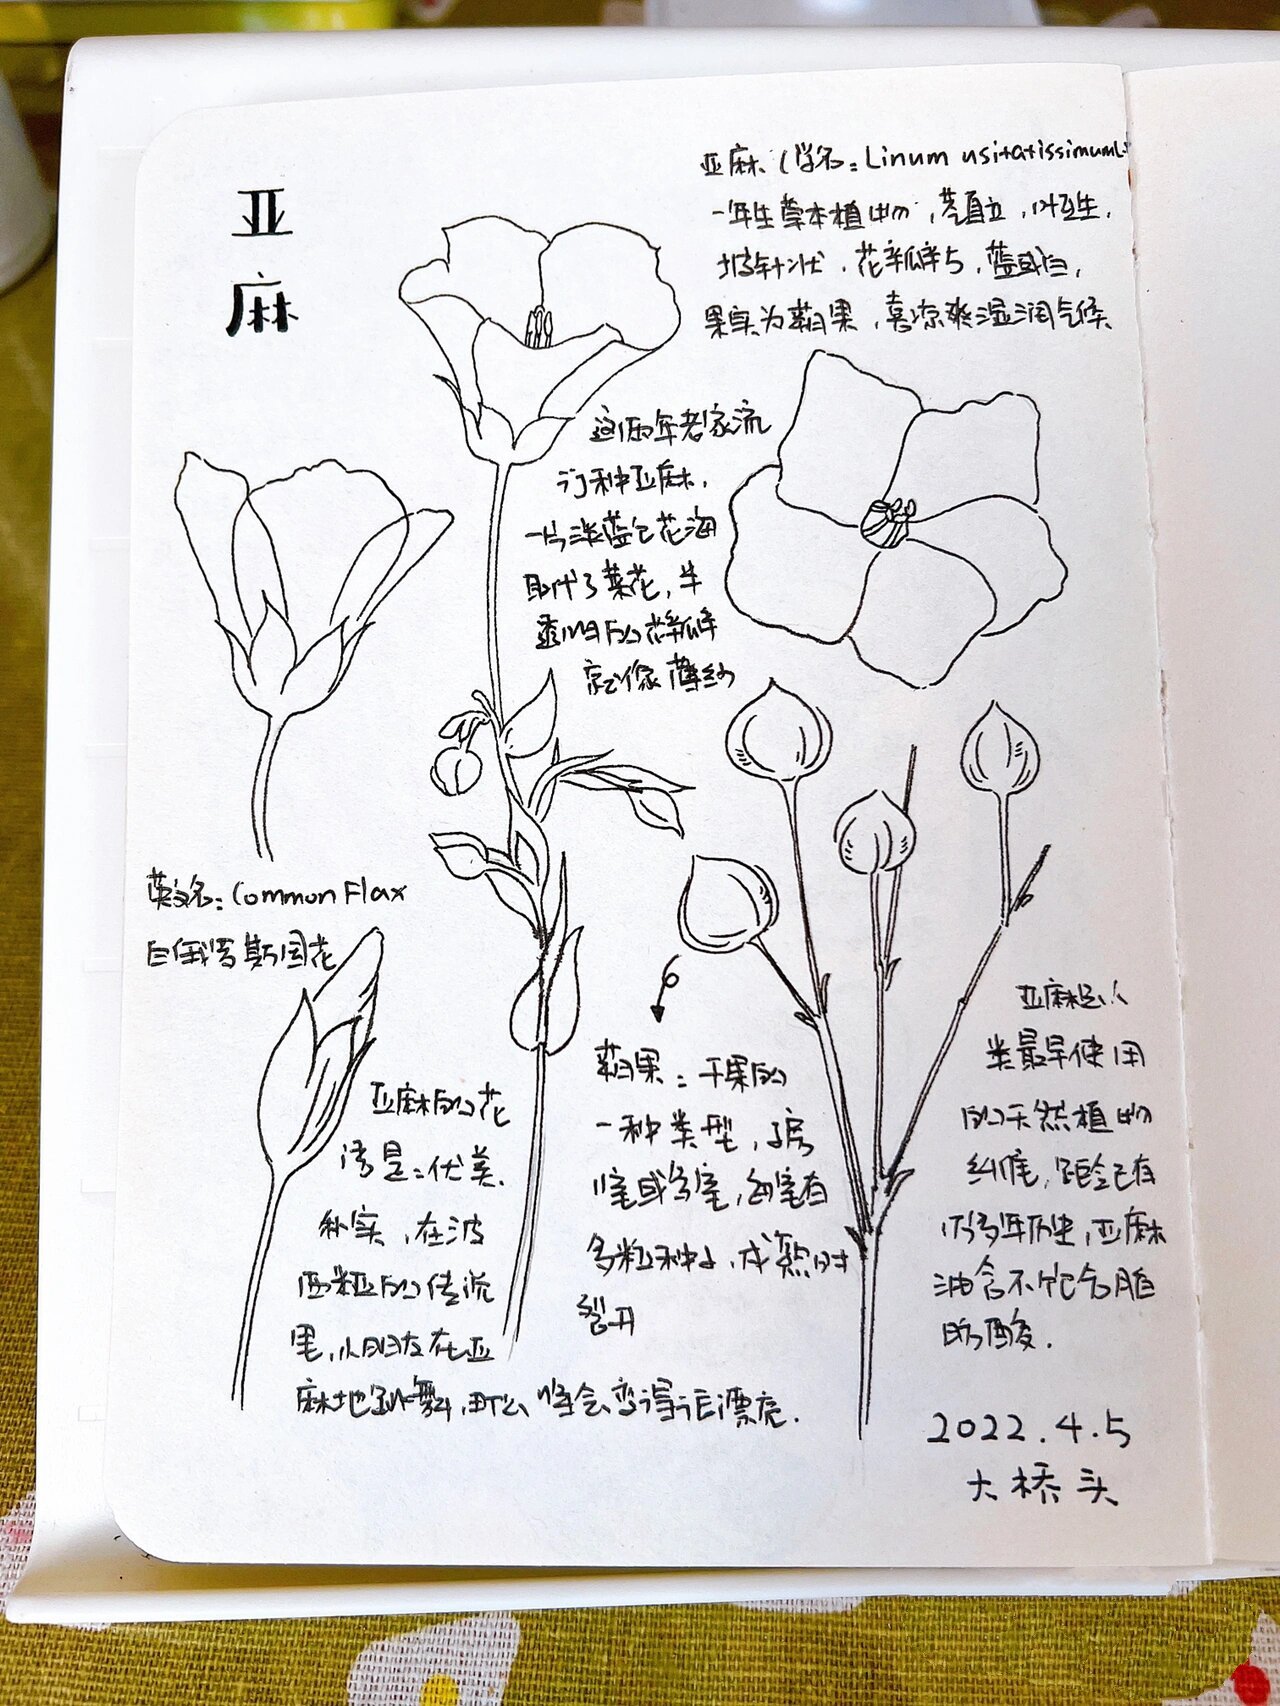 亚
麻
亚麻（学名：Linum usitatissimumL.
一年生草本植物，茎直立，叶互生，
披针状，花瓣5，蓝或白，
果实为蒴果，喜凉爽湿润气候
这两年老家流
行种亚麻，
一片淡蓝色花海
取代了菜花，半
透明的花瓣
就像薄纱
英文名：Common Flax
白俄罗斯国花
亚麻的花
语是：优美、
朴实，在波
西米亚的传说
里，小朋友在亚
麻地跳舞，那么将会变得 漂亮.
蒴果：干果的
一种类型，子房
1室或多室，每室有
多粒种子，成熟时
裂开
亚麻是人
类最早使用
的天然植物
纤维，距今已有
1万多年历史，亚麻
油含不饱合脂
肪酸.
2022.4.5
大桥头